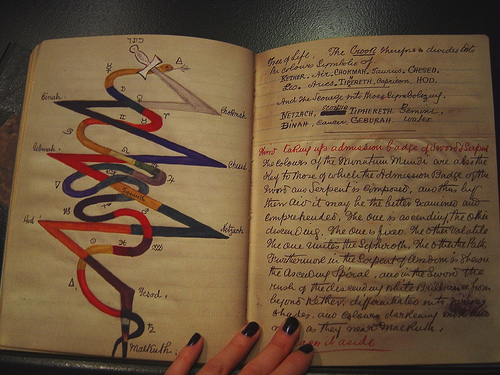 כתר
Binah
Chokmah
Chesed
Geburah
Hod
Netzach
Yesod
Malkuth
Tree of Life. The Crook therefore is divided into
the colours Symbolic of
KETHER. Air. CHOKMAH. Taurus. CHESED.
Leo. Aries. TIPHERETH. Capricorn. HOD.
And the Scourge into those Symbolizing.
NETZACH. Scorpio TIPHERETH. Gemini.
BINAH. Cancer. GEBURAH. Water
taking up admission badge of Sword & Serpent
The Colours of the Minutum Mundi are also the
Key to those of which the Admission Badge of the
Sword and Serpent is Composed, and thus by
their aid it may be the better examined and
comprehended. The one is ascending the other
descending. The one is fixed. The other Volatile
The one unites the Sephiroth. The other the Paths
Furthermore in the Serpent of Wisdom is shewn
the Ascending Spiral, and in the Sword the
rush of the descending White Brilliance from
beyond Kether, differentiated into various
shades and colours darkening
as they near Malkuth.